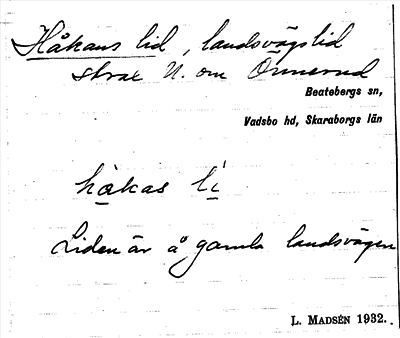 Håkans lid, landsvägslid
strax N. om Önnerud
Beatebergs sn,
Vadsbo hd, Skaraborgs län
håkas li
Liden är å gamla landsvägen
L. MADSÉN 1932.